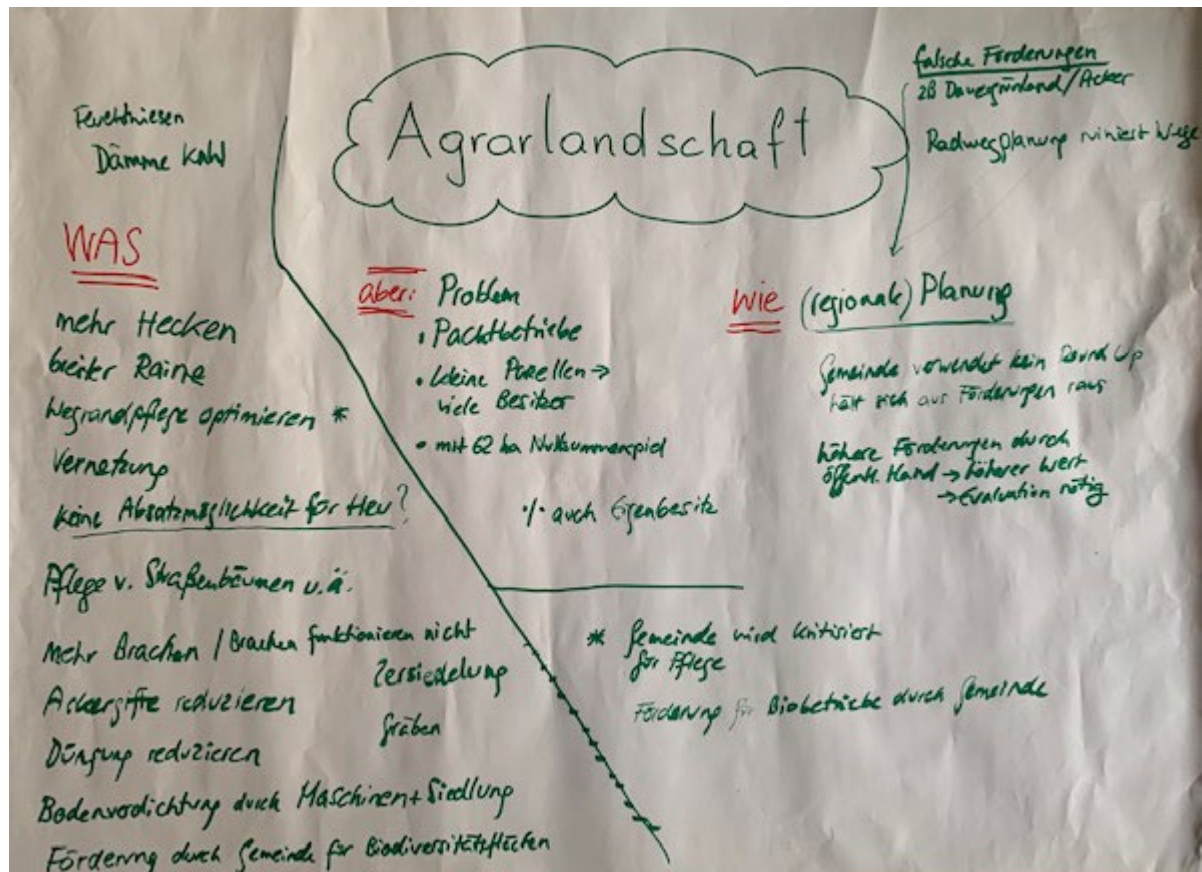 Agrarlandschaft
Feuchtwiesen
Dämme kahl
falsche Förderungen
zB Dauergrünland/Acker
Radwegplanung ruiniert Wege
WAS
mehr Hecken
breiter Raine
Wegrandpflege optimieren *
Vernetzung
keine Absatzmöglichkeit für Heu?
Pflege v. Straßenbäumen u.ä.
Mehr Brachen / Brachen funktionieren nicht
Zersiedelung
Ackergifte reduzieren
Gräben
Düngung reduzieren
Bodenverdichtung durch Maschinen + Siedlung
Förderung durch Gemeinde für Biodiversitätsflächen
aber: Problem
• Pachtbetriebe
• kleine Parzellen →
viele Besitzer
• mit 62 ha Nullsummenspiel
·/· auch Eigenbesitz
wie (regionale) Planung
Gemeinde verwendet kein Round Up
hält sich aus Förderungen raus
höhere Förderungen durch
öffentl. Hand → höherer Wert
→ Evaluation nötig
* Gemeinde wird kritisiert
für Pflege
Förderung für Biobetriebe durch Gemeinde